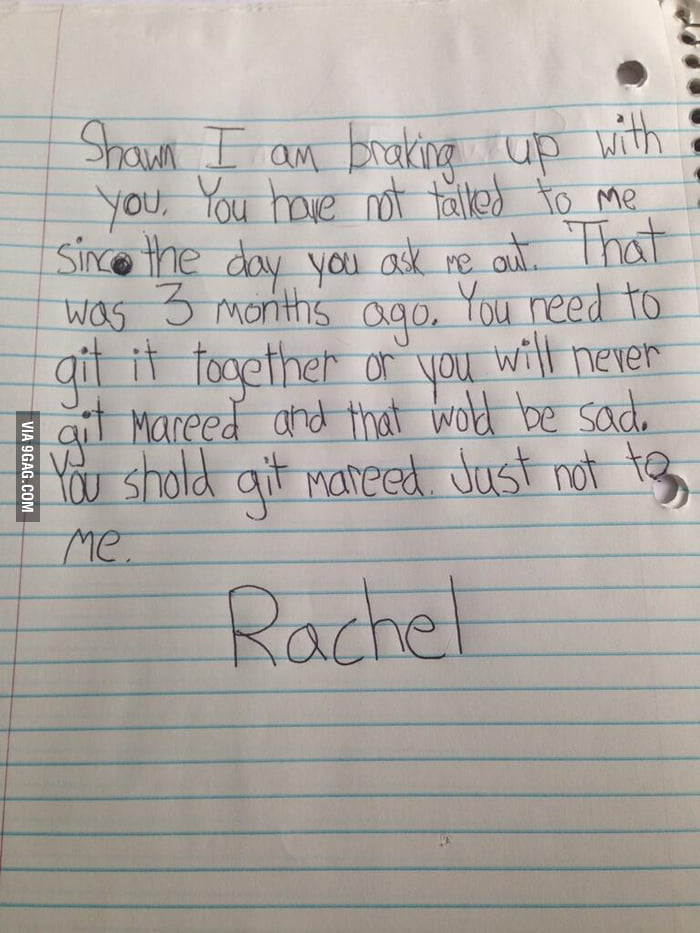 Shawn I am braking up with
you. You have not talked to me
since the day you ask me out. That
was 3 months ago. You need to
git it together or you will never
git mareed and that wold be sad.
You shold git mareed. Just not to
me.
Rachel
VIA 9GAG.COM